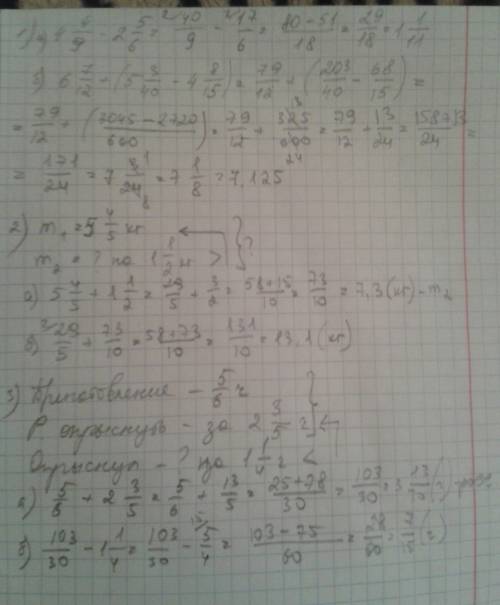 1) а) 4 4/9 - 2 5/6 = 40/9 - 17/6 = 80-51/18 = 29/18 = 1 1/11
б) 6 7/12 + (5 3/40 - 4 8/15) = 79/12 + (203/40 - 68/15) =
= 79/12 + (3045-2720/600) = 79/12 + 325/600 = 79/12 + 13/24 = 158+13/24 =
= 171/24 = 7 3/24 = 7 1/8 = 7,125
2) m₁ = 5 4/5 кг
m₂ = ? на 1 1/2 кг > ?
а) 5 4/5 + 1 1/2 = 29/5 + 3/2 = 58+15/10 = 73/10 = 7,3 (кг) - m₂
б) 29/5 + 73/10 = 58+73/10 = 131/10 = 13,1 (кг)
3) Приготовление - 5/6 ч
Р. опрыснуть - за 2 3/5 ч
Опрыснул - ? на 1 1/4 ч <
а) 5/6 + 2 3/5 = 5/6 + 13/5 = 25+78/30 = 103/30 = 3 13/30
б) 103/30 - 1 1/4 = 103/30 - 5/4 = 103-75/60 = 28/60 =